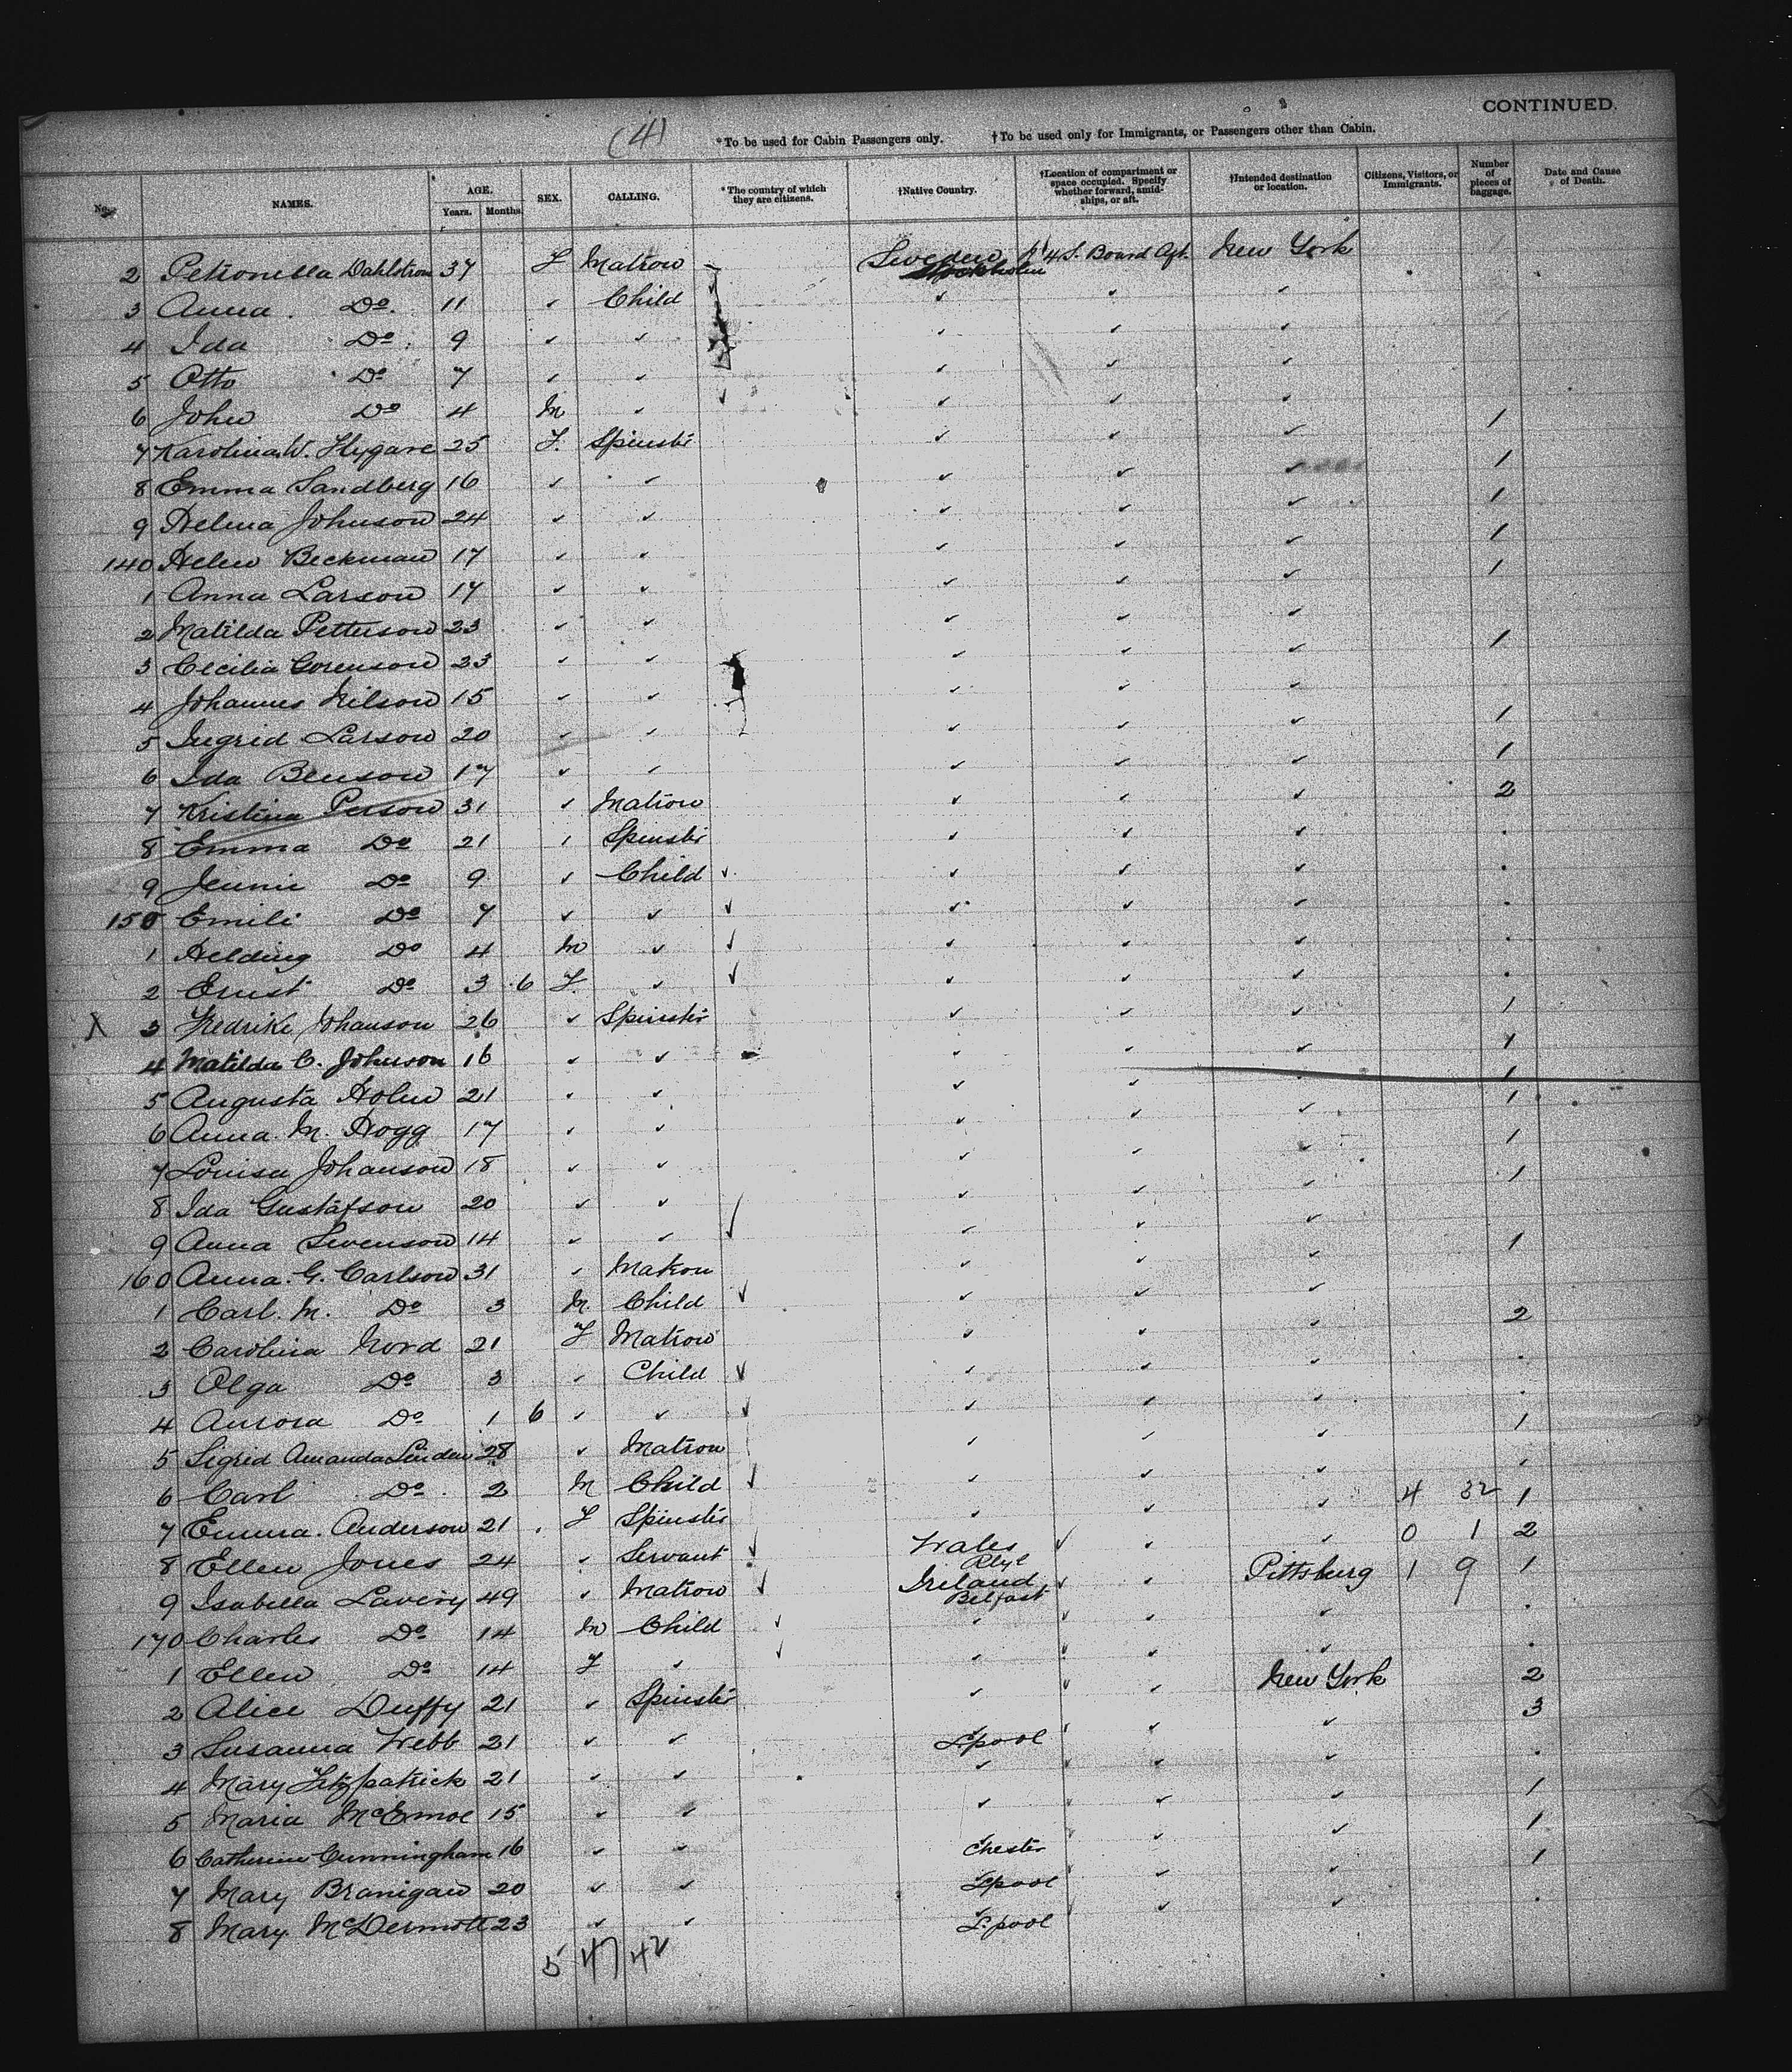 CONTINUED.
(4) *To be used for Cabin Passengers only. †To be used only for Immigrants, or Passengers other than Cabin.
No. NAMES. AGE. Years. Months. SEX. CALLING. *The country of which they are citizens. †Native Country. †Location of compartment or space occupied. Specify whether forward, amidships, or aft. †Intended destination or location. Citizens, Visitors, or Immigrants. Number of pieces of baggage. Date and Cause of Death.
2 Petronella Dahlstrom 37 F Matron Sweden Stockholm 4 S. Board Aft. New York
3 Anna Do. 11 ✓ Child ✓ ✓ ✓ ✓
4 Ida Do. 9 ✓ ✓ ✓ ✓ ✓
5 Otto Do 7 ✓ ✓ ✓ ✓ ✓
6 John Do 4 M ✓ ✓ ✓ ✓ ✓
7 Karolina W. Flygare 25 F. Spinstr ✓ ✓ ✓ 1
8 Emma Sandberg 16 ✓ ✓ ✓ ✓ ✓ 1
9 Helma Johnson 24 ✓ ✓ ✓ ✓ ✓ 1
140 Helen Beckman 17 ✓ ✓ ✓ ✓ ✓ 1
1 Anna Larson 17 ✓ ✓ ✓ ✓ ✓ 1
2 Matilda Petterson 23 ✓ ✓ ✓ ✓ ✓
3 Cecilia Gorenson 23 ✓ ✓ ✓ ✓ ✓ 1
4 Johannes Nilson 15 ✓ ✓ ✓ ✓ ✓
5 Ingrid Larson 20 ✓ ✓ ✓ ✓ ✓ 1
6 Ida Benson 17 ✓ ✓ ✓ ✓ ✓ 1
7 Kristina Person 31 ✓ Matron ✓ ✓ ✓ 2
8 Emma Do 21 ✓ Spinstr ✓ ✓ ✓
9 Jennie Do 9 ✓ Child ✓ ✓ ✓ ✓
150 Emili Do 7 ✓ ✓ ✓ ✓ ✓ ✓
1 Helding Do 4 M ✓ ✓ ✓ ✓ ✓
2 Ernst Do 3 6 F. ✓ ✓ ✓ ✓ ✓
X 3 Fredrike Johanson 26 ✓ Spinstr ✓ ✓ ✓ 1
4 Matilda C. Johnson 16 ✓ ✓ ✓ ✓ ✓ 1
5 Augusta Holm 21 ✓ ✓ ✓ ✓ ✓ 1
6 Anna M. Hogg 17 ✓ ✓ ✓ ✓ ✓ 1
7 Louisa Johanson 18 ✓ ✓ ✓ ✓ ✓ 1
8 Ida Gustafson 20 ✓ ✓ ✓ ✓ ✓ 1
9 Anna Svenson 14 ✓ ✓ ✓ ✓ ✓ ✓
160 Anna. G. Carlson 31 ✓ Matron ✓ ✓ ✓ 1
1 Carl. M. Do 3 M. Child ✓ ✓ ✓ ✓
2 Carolina Nord 21 F Matron ✓ ✓ ✓ 2
3 Olga Do 3 ✓ Child ✓ ✓ ✓ ✓
4 Aurora Do 1 6 ✓ ✓ ✓ ✓ ✓ ✓
5 Sigrid Amanda Linden 28 ✓ Matron ✓ ✓ ✓ 1
6 Carl Do 2 M Child ✓ ✓ ✓ ✓
7 Emma. Anderson 21 F Spinstr ✓ ✓ ✓ 4 32 1
8 Ellen Jones 24 ✓ Servant ✓ Wales Rhyl ✓ ✓ ✓ 0 1 2
9 Isabella Lavery 49 ✓ Matron ✓ Ireland Belfast ✓ ✓ Pittsburg 1 9 1
170 Charles Do 14 M Child ✓ ✓ ✓ ✓ ✓
1 Ellen Do 14 F ✓ ✓ ✓ ✓ ✓ ✓
2 Alice Duffy 21 ✓ Spinstr ✓ ✓ ✓ New York 2
3 Susanna Webb 21 ✓ ✓ L.pool ✓ ✓ ✓ 3
4 Mary Fitzpatrick 21 ✓ ✓ ✓ ✓ ✓ ✓
5 Maria 15 ✓ ✓ ✓ ✓ ✓ 1
6 Catherine Cunningham 16 ✓ ✓ Chester ✓ ✓ 1
7 Mary Branigan 20 ✓ ✓ L.pool ✓ ✓ 1
8 Mary McDermott 23 ✓ ✓ L.pool ✓ ✓
5 47 42